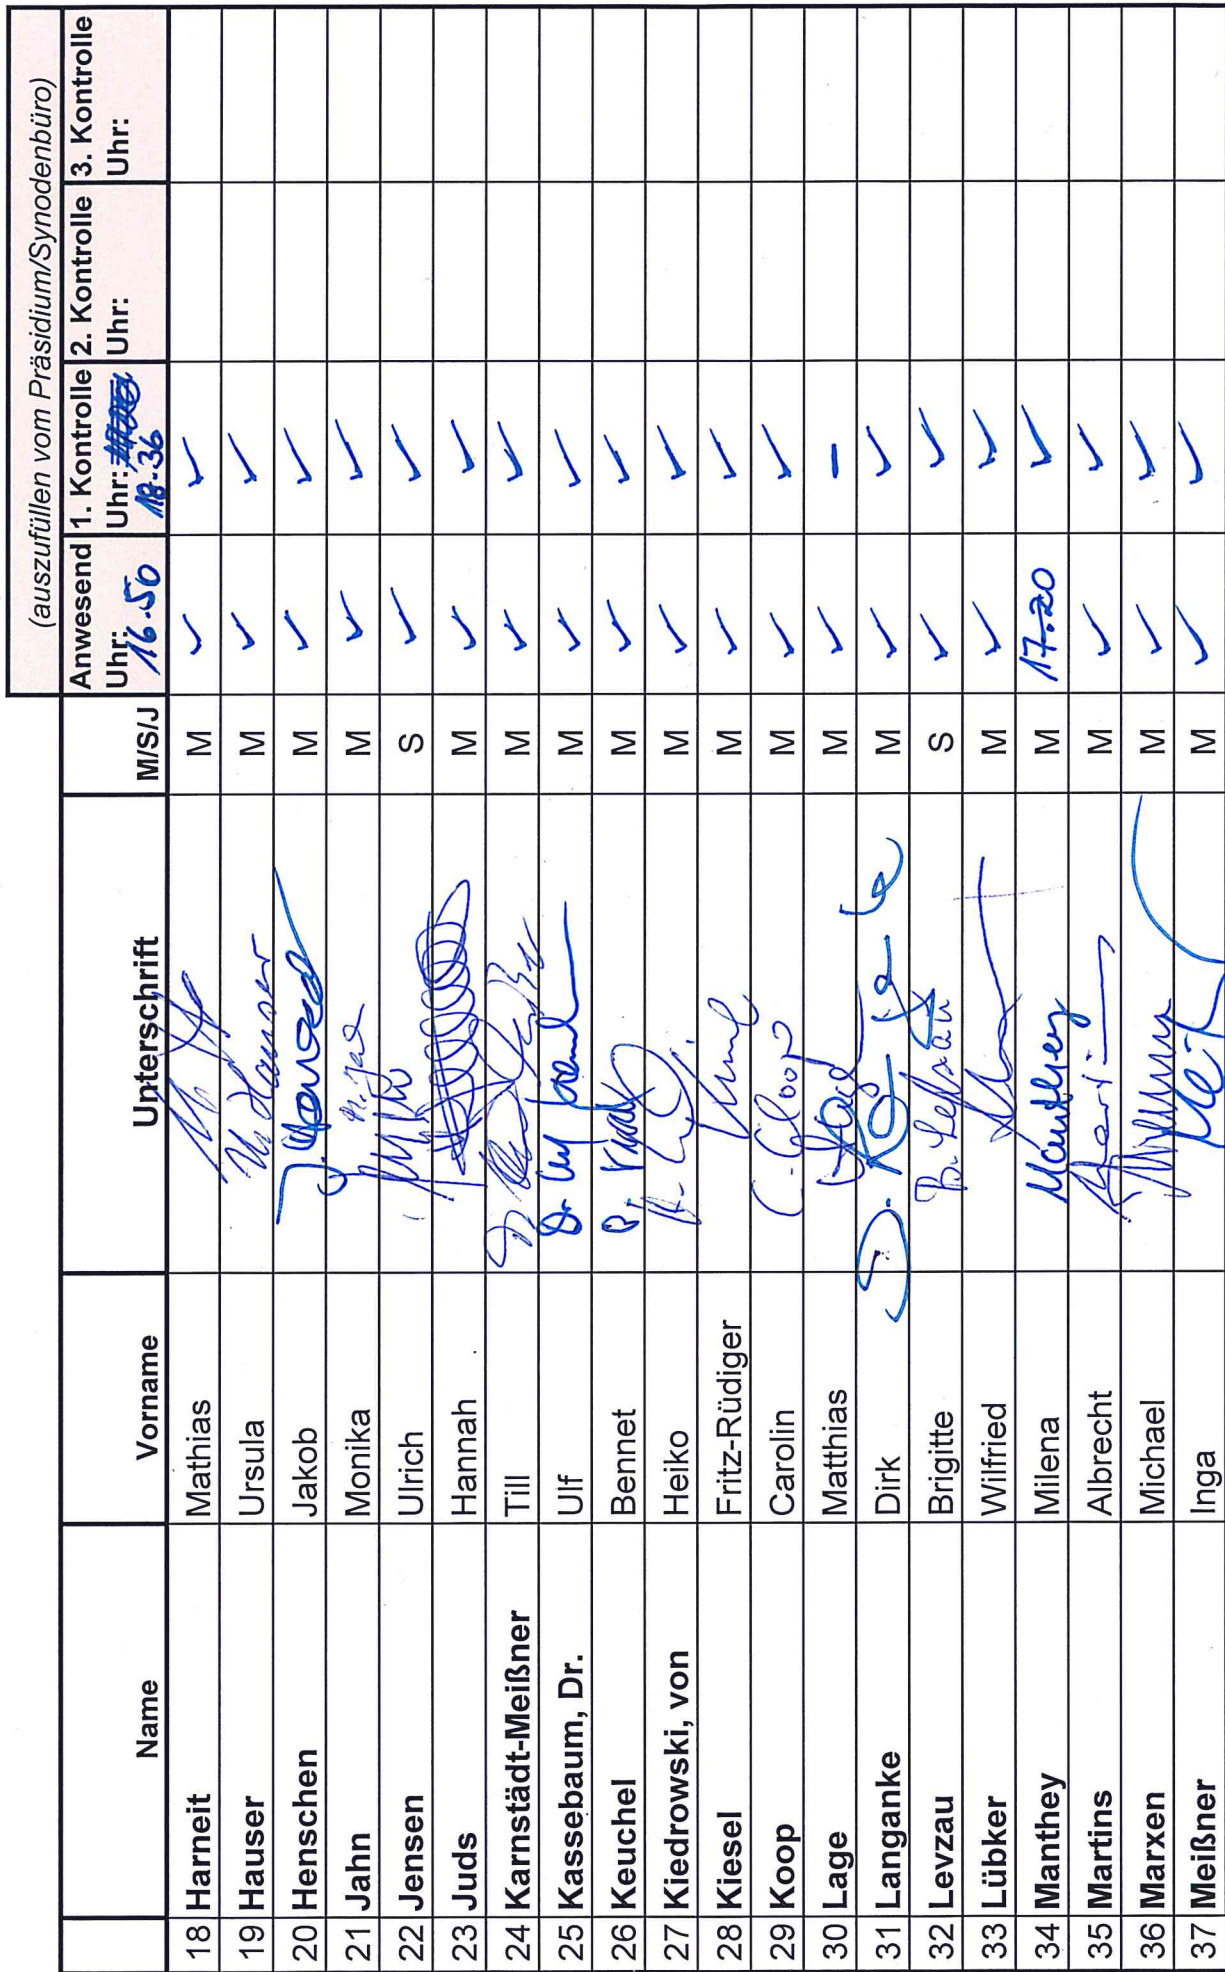 (auszufüllen vom Präsidium/Synodenbüro)
Name Vorname Unterschrift M/S/J Anwesend Uhr: 16.50 1. Kontrolle Uhr: 18.36 2. Kontrolle Uhr: 3. Kontrolle Uhr:
18 Harneit Mathias M ✓ ✓
19 Hauser Ursula U. Hauser M ✓ ✓
20 Henschen Jakob M ✓ ✓
21 Jahn Monika M ✓ ✓
22 Jensen Ulrich S ✓ ✓
23 Juds Hannah M ✓ ✓
24 Karnstädt-Meißner Till M ✓ ✓
25 Kassebaum, Dr. Ulf M ✓ ✓
26 Keuchel Bennet M ✓ ✓
27 Kiedrowski, von Heiko M ✓ ✓
28 Kiesel Fritz-Rüdiger M ✓ ✓
29 Koop Carolin C. Koop M ✓ ✓
30 Lage Matthias M ✓ –
31 Langanke Dirk M ✓ ✓
32 Levzau Brigitte B. Levzau S ✓ ✓
33 Lübker Wilfried M ✓ ✓
34 Manthey Milena Manthey M 17.20 ✓
35 Martins Albrecht M ✓ ✓
36 Marxen Michael M ✓ ✓
37 Meißner Inga M ✓ ✓